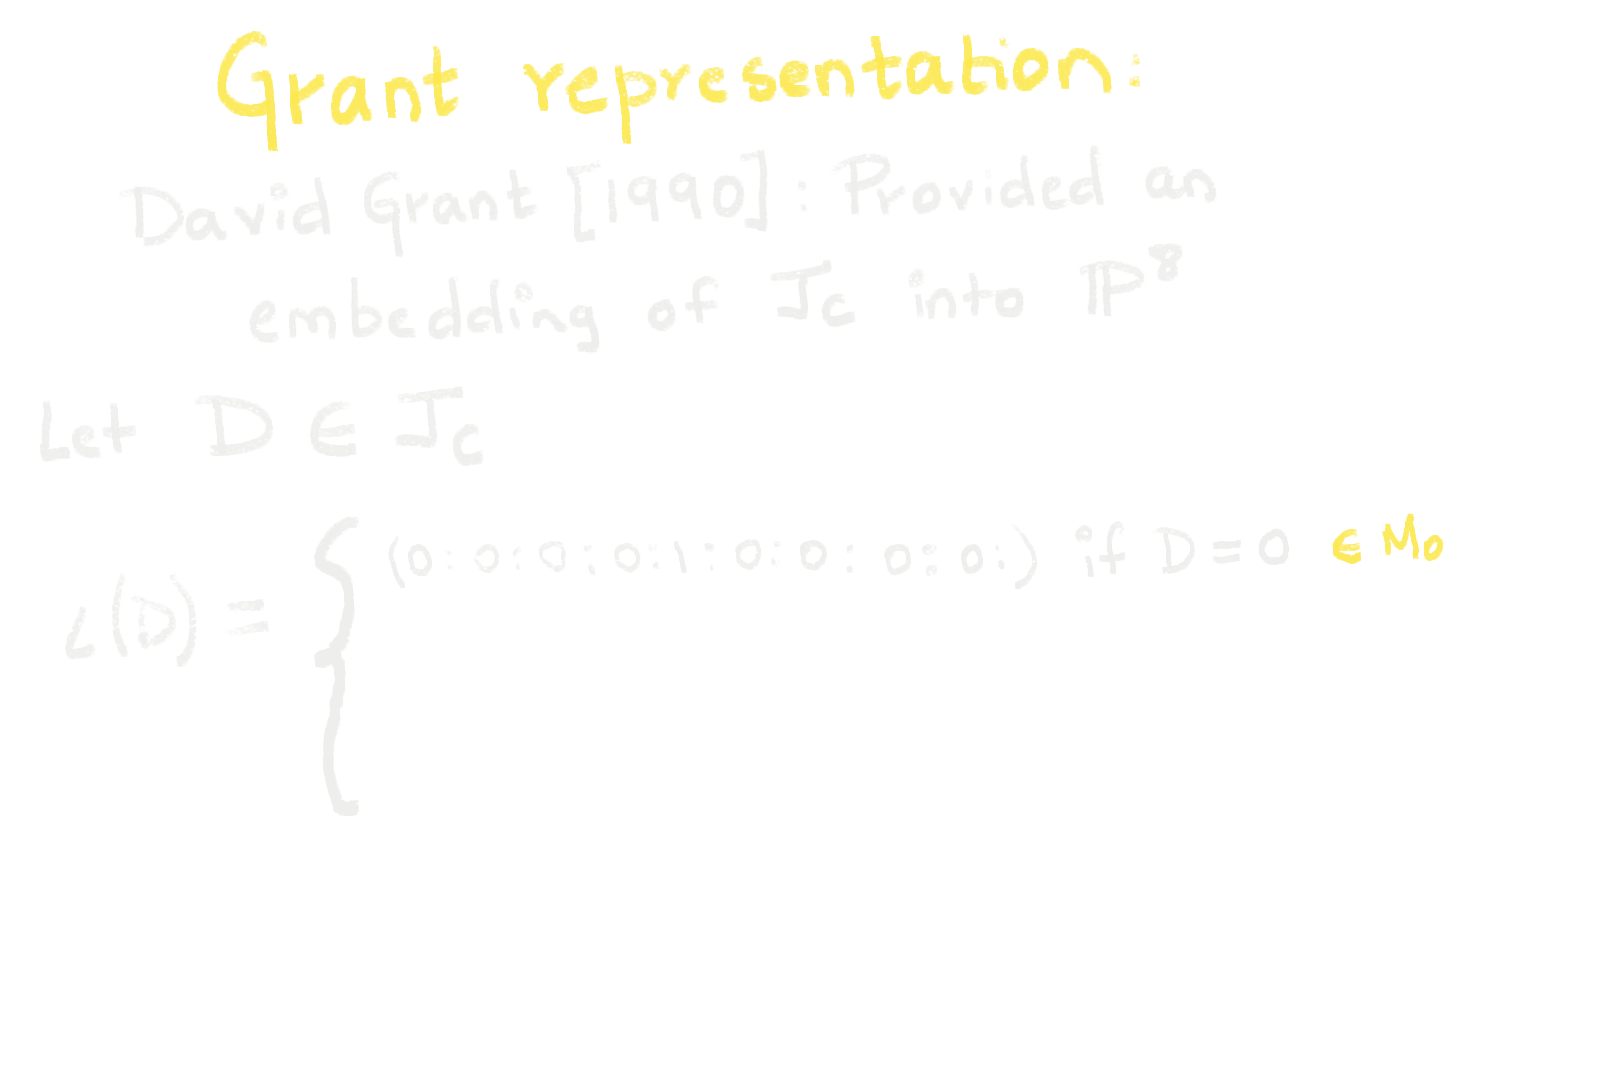 Grant representation:
David Grant [1990] : Provided an
embedding of J_C into ℙ^8
Let D ∈ J_C
L(D) = { (0:0:0:0:1:0:0:0:0:) if D = 0 ∈ M_0